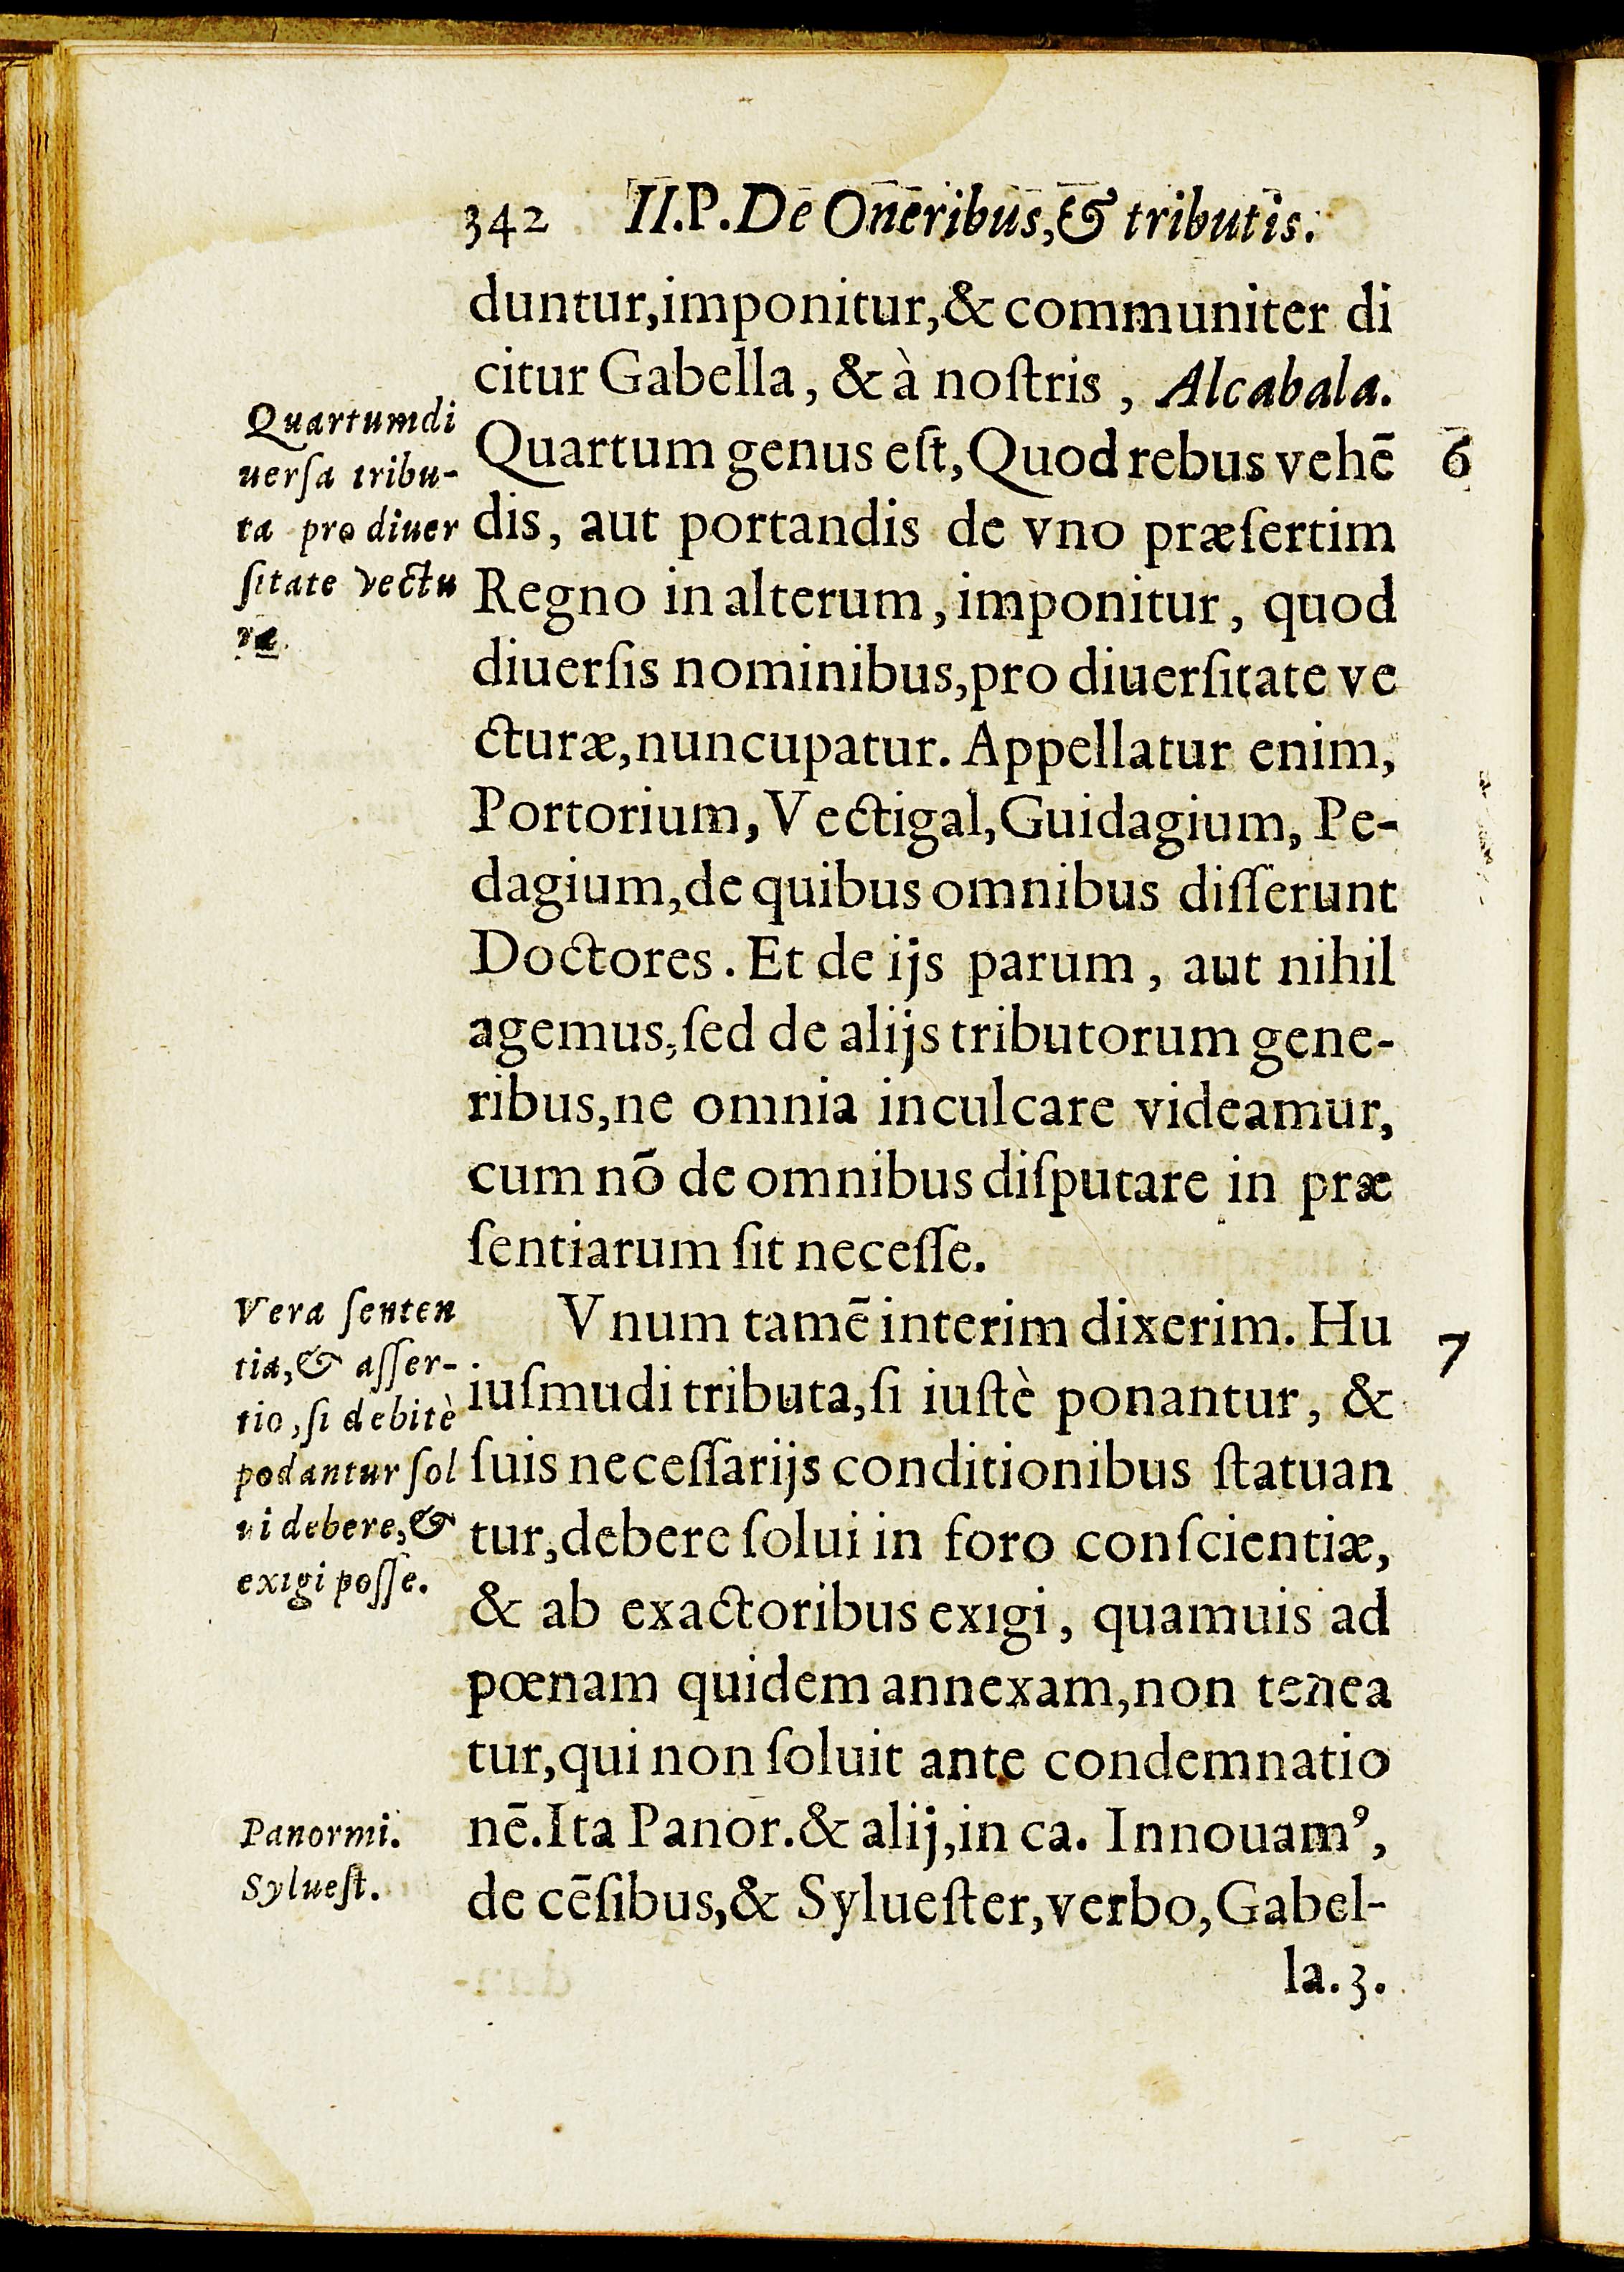 342 II.P. De Oneribus, & tributis.
duntur, imponitur, & communiter di
citur Gabella, & à noſtris, Alcabala.
Quartum genus eſt, Quod rebus vehē
dis, aut portandis de vno præſertim
Regno in alterum, imponitur, quod
diuerſis nominibus, pro diuerſitate ve
cturæ, nuncupatur. Appellatur enim,
Portorium, Vectigal, Guidagium, Pe-
dagium, de quibus omnibus diſſerunt
Doctores. Et de ijs parum, aut nihil
agemus, ſed de alijs tributorum gene-
ribus, ne omnia inculcare videamur,
cum nō de omnibus diſputare in præ
ſentiarum ſit neceſſe.
Vnum tamē interim dixerim. Hu
iuſmudi tributa, ſi iuſtè ponantur, &
ſuis neceſſarijs conditionibus ſtatuan
tur, debere ſolui in foro conſcientiæ,
& ab exactoribus exigi, quamuis ad
pœnam quidem annexam, non tenea
tur, qui non ſoluit ante condemnatio
nē. Ita Panor. & alij, in ca. Innouamꝰ,
de cēſibus, & Sylueſter, verbo, Gabel-
la. 3.
Quartum di
uerſa tribu-
ta pro diuer
ſitate vectu
ræ.
6
Vera ſenten
tia, & aſſer-
tio, ſi debitè
podantur ſol
ui debere, &
exigi poſſe.
7
Panormi.
Sylueſt.